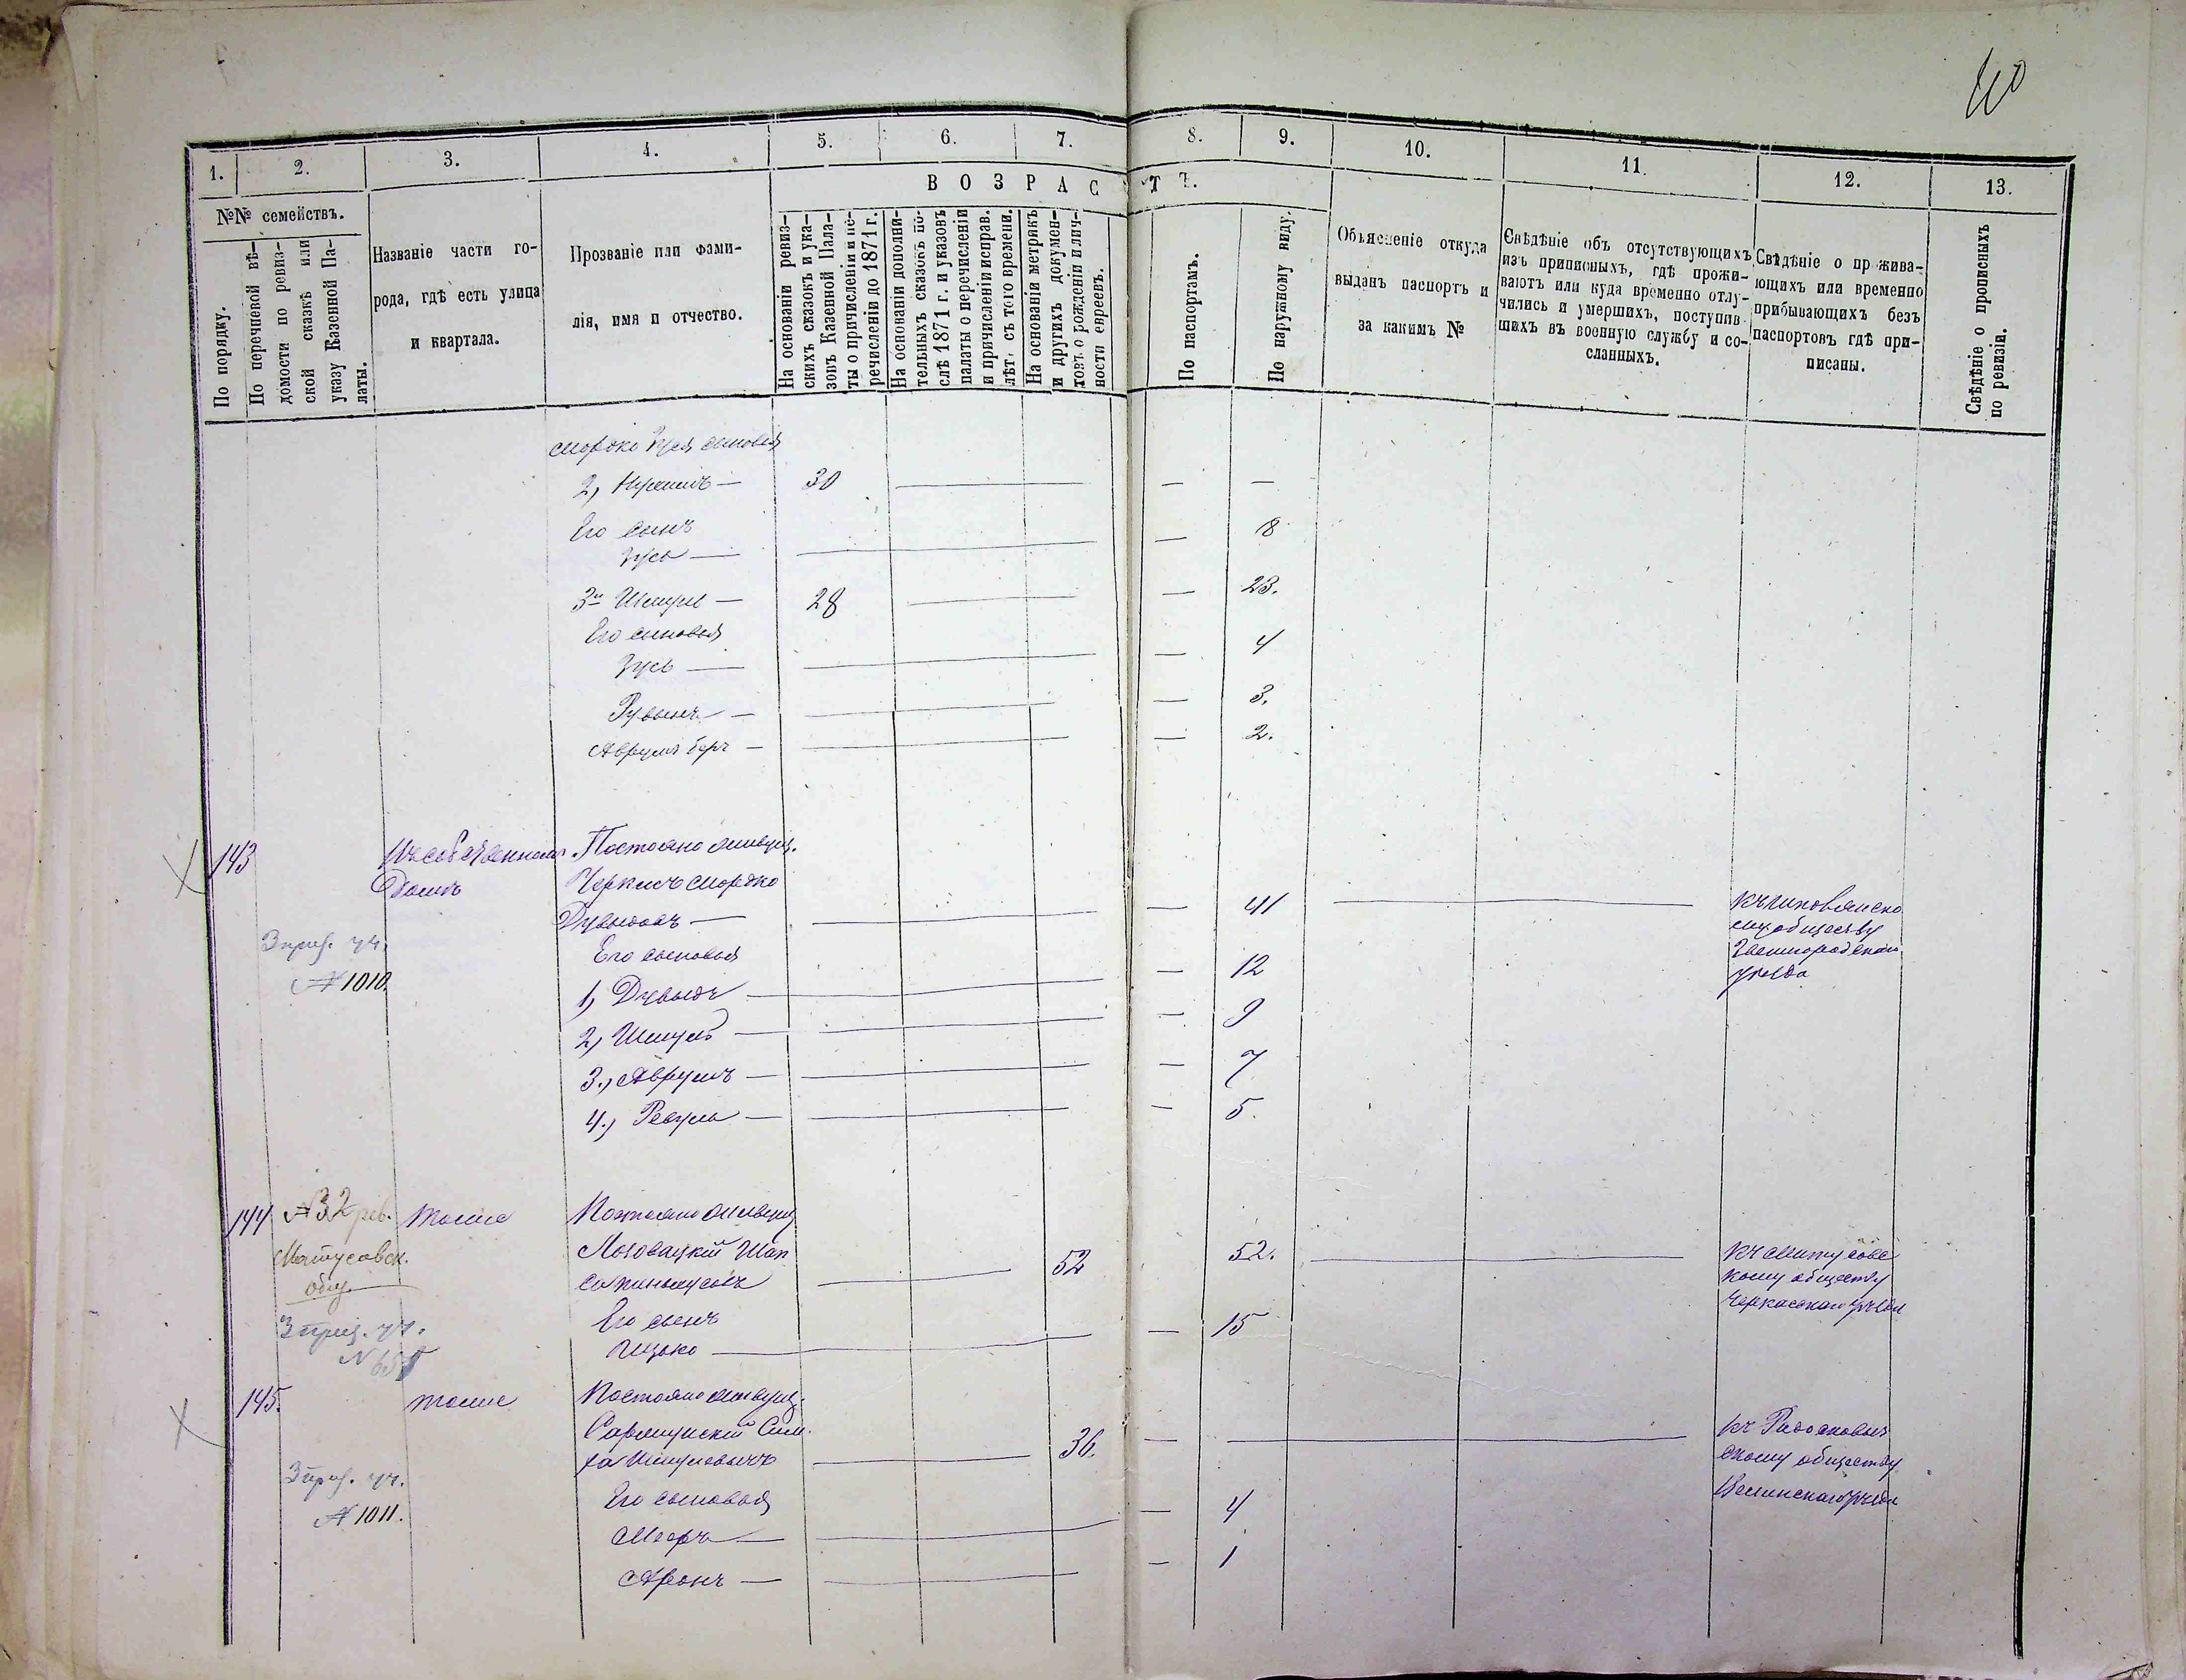 40
1. 2. 3. 4. 5. 6. 7. 8. 9. 10. 11. 12. 13.
№№ семействъ.
По порядку.
По перечневой вѣ-
домости по ревиз-
ской сказкѣ или
указу Казенной Па-
латы.
Названіе части го-
рода, гдѣ есть улица
и квартала.
Прозваніе или фами-
лія, имя и отчество.
ВОЗРАСТЪ.
На основаніи ревиз-
скихъ сказокъ и ука-
зовъ Казенной Пала-
ты о причисленіи и пе-
речисленіи до 1871 г.
На основаніи дополни-
тельныхъ сказокъ по-
слѣ 1871 г. и указовъ
палаты о перечисленіи
и причисленіи исправ.
лѣт. съ того времени.
На основаніи метрикъ
и другихъ докумен-
товъ о рожденіи и лич-
ности евреевъ.
По паспортамъ.
По наружному виду.
Объясненіе откуда
выданъ паспортъ и
за какимъ №
Свѣдѣніе объ отсутствующихъ
изъ приписныхъ, гдѣ прожи-
ваютъ или куда временно отлу-
чились и умершихъ, поступив-
шихъ въ военную службу и со-
сланныхъ.
Свѣдѣніе о прожива-
ющихъ или временно
прибывающихъ безъ
паспортовъ гдѣ при-
писаны.
Свѣдѣніе о прописныхъ
по ревизіи.
сыновья
2, — 30 — — —
Его сынъ
Зусь — — — 18
3й Шмуль — 28 — — 23.
Его сыновья
Зусь — — — 4
Рувынъ — — — 3.
Аврумъ Беръ — — — 2.
143 Въ собственном Постояно живущ.
домѣ Черкисъ Мордко
Дувидовъ — — — 41 —
Къ
му обществу
Звенигородскаго
уѣзда
3 приз. уч.
№ 1010.
Его сыновья
1, Дувыдъ — — — 12
2, Шмуль — — — 9
3., Аврумъ — — — 7
4., — — — 5.
144 № 32 рев. тоже Постояно живущ
Мотусовск.
общ.
Лозовацкій Шап
— 52 52. —
Къ Матусовс
кому обществу
Черкасскаго уѣзда
3 приз. уч.
Его сынъ
Ицько — — — 15
145. тоже Постояно живущ.
Сим
ха Шмулевичъ — 36. — —
скому обществу
3 приз. уч.
№ 1011.
Его сыновья
Мееръ — — — 4
Аронъ — — — 1